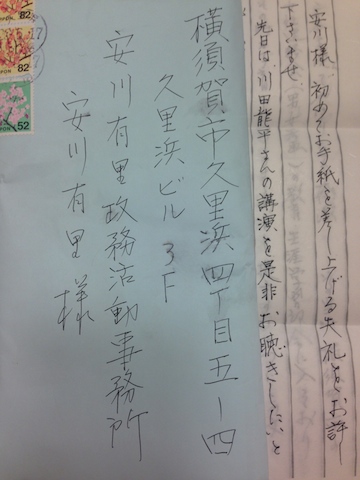 安川様 初めてお手紙を差し上げる失礼をお許
下さいませ。
先日は、川田龍平さんの講演を是非お聴きしたいと
横須賀市久里浜四丁目五ー四
久里浜ビル3F
安川有里政務活動事務所
安川有里様
82
82
52